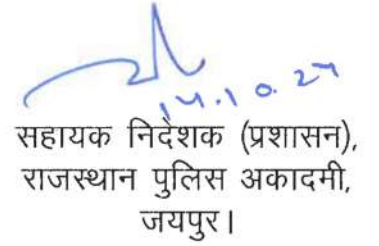 14.10.24
सहायक निदेशक (प्रशासन),
राजस्थान पुलिस अकादमी,
जयपुर।